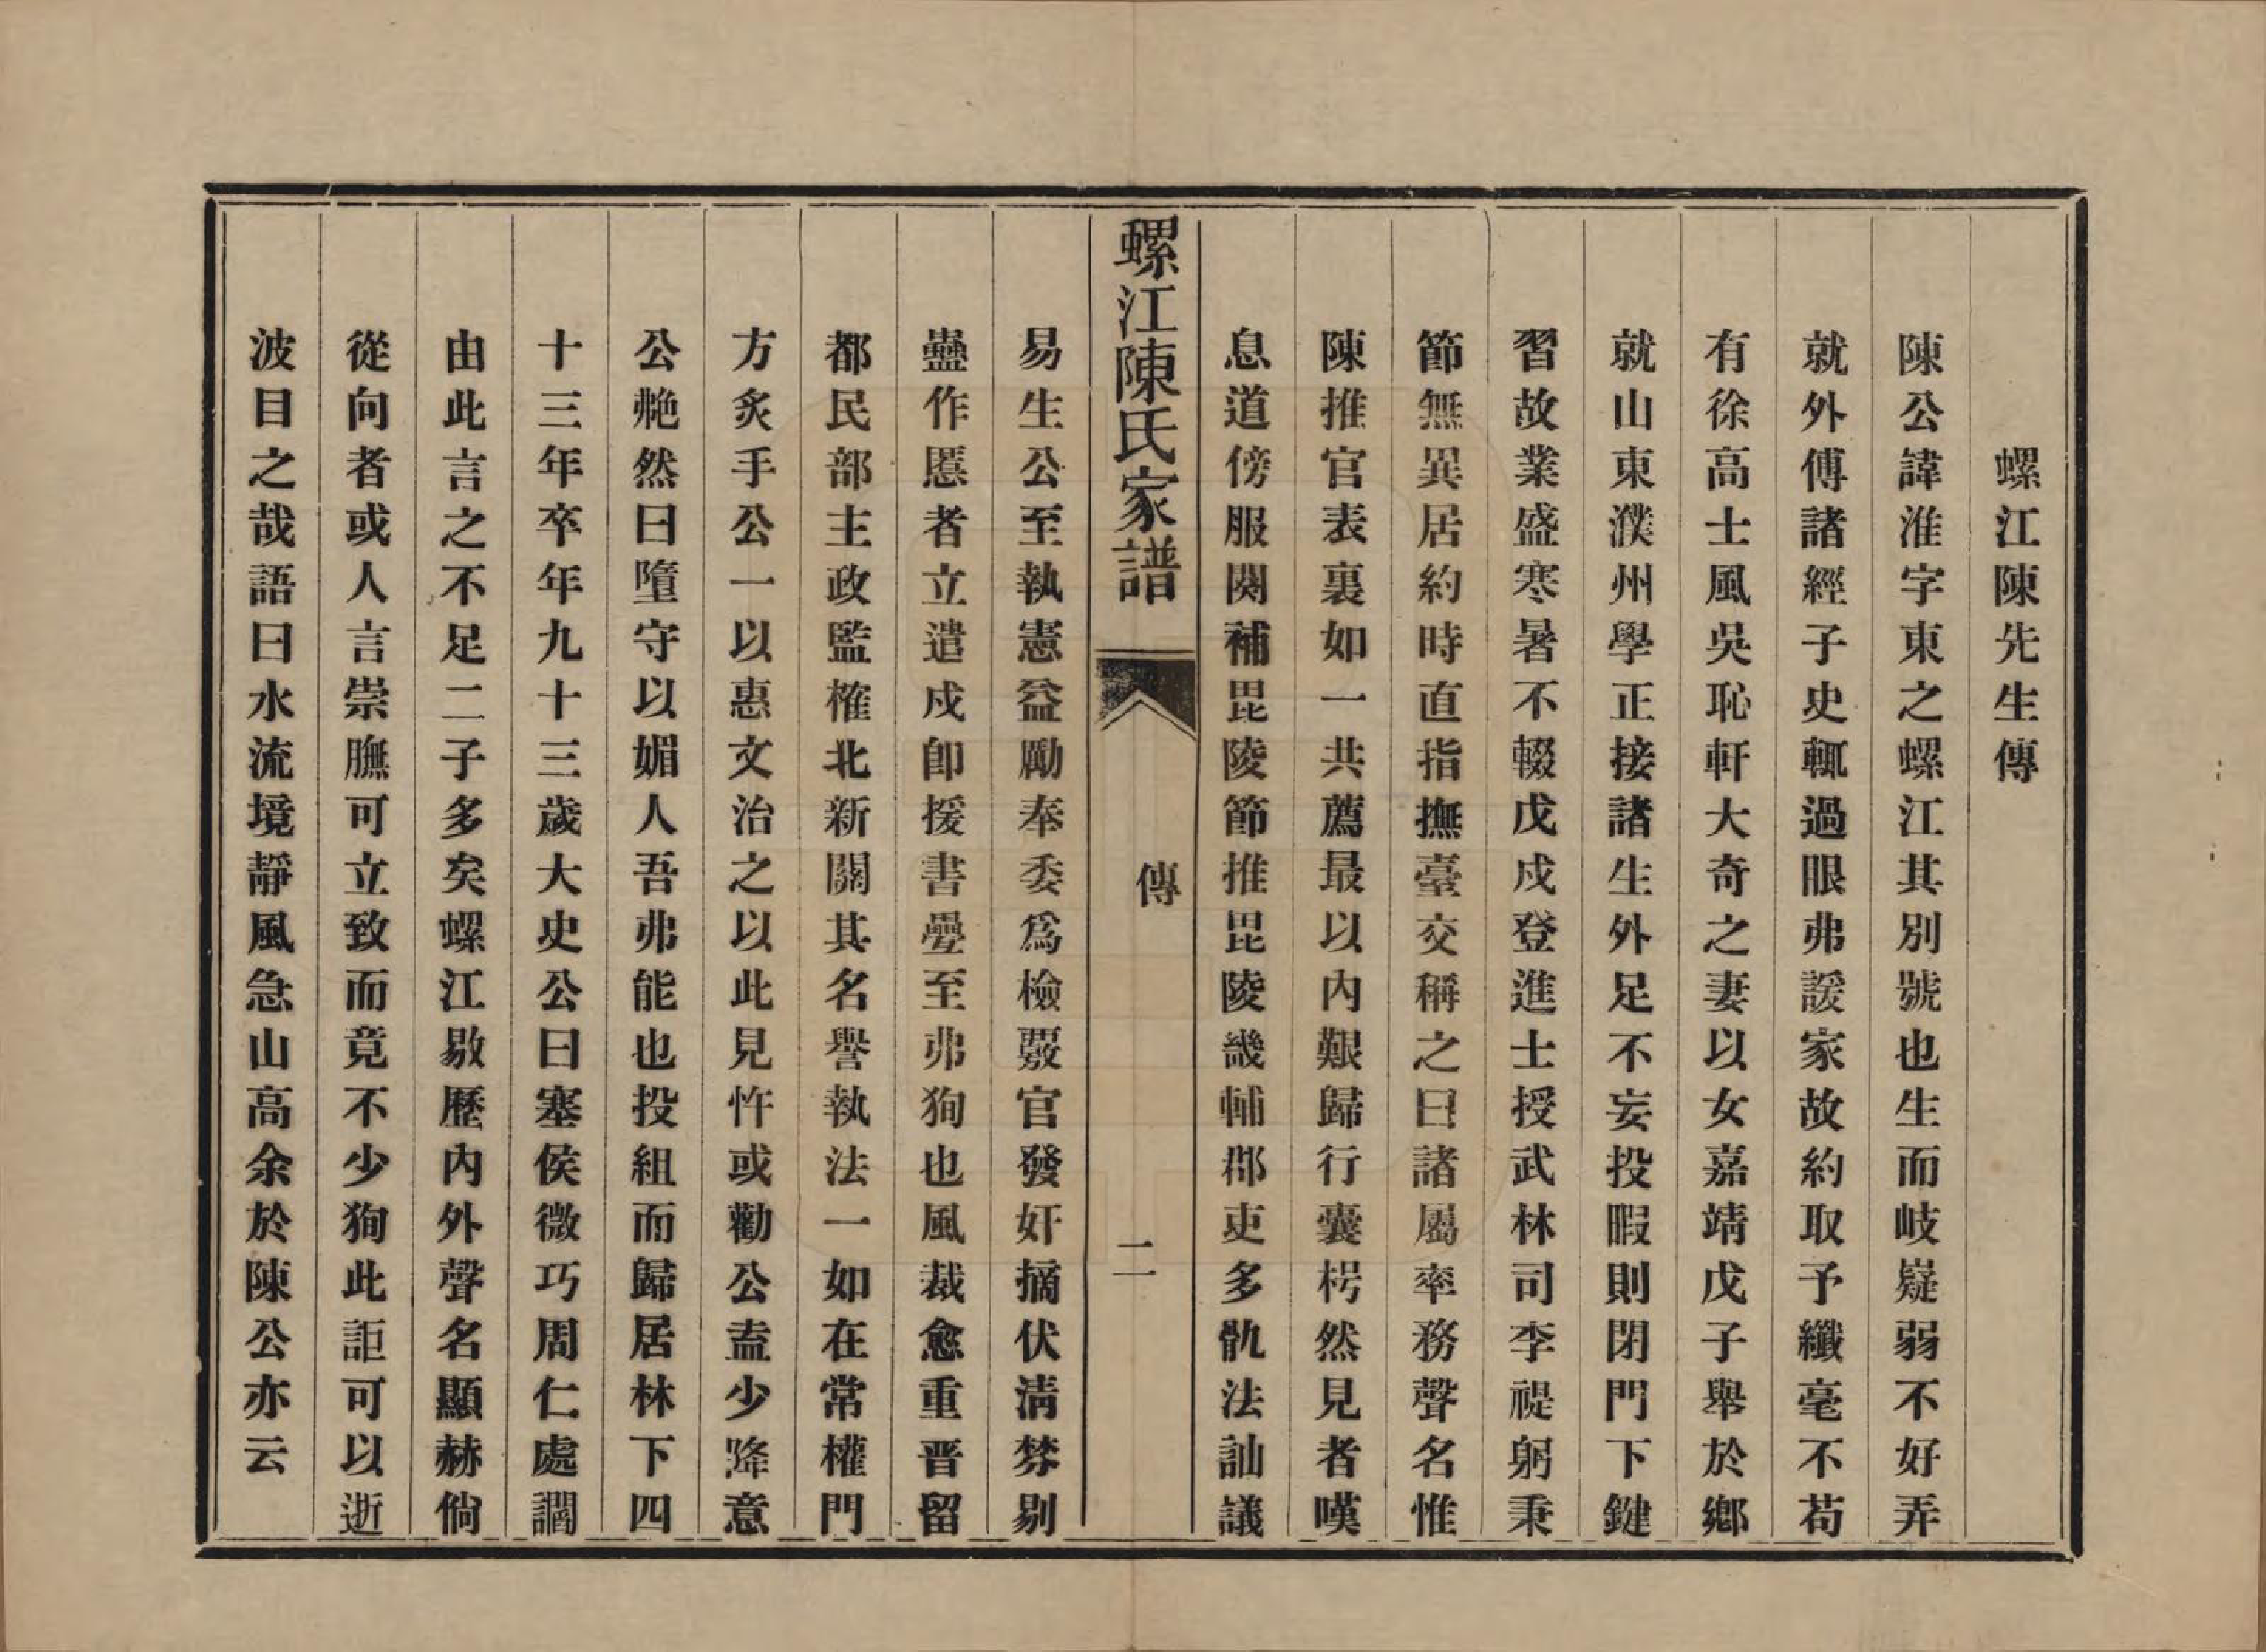 螺江陳先生傳
陳公諱淮字東之螺江其別號也生而岐嶷弱不好弄
就外傅諸經子史輒過眼弗諼家故約取予纖毫不苟
有徐高士風吳恥軒大奇之妻以女嘉靖戊子舉於鄉
就山東濮州學正接諸生外足不妄投暇則閉門下鍵
習故業盛寒暑不輟戊戌登進士授武林司李禔躬秉
節無異居約時直指撫臺交稱之曰諸屬率務聲名惟
陳推官表裏如一共薦最以內艱歸行囊枵然見者嘆
息道傍服闋補毘陵節推毘陵畿輔郡吏多骫法訕議
螺江陳氏家譜
傳
二
易生公至執憲益勵奉委爲檢覈官發奸摘伏清弊剔
蠱作慝者立遣戍卽援書疊至弗狥也風裁愈重晋留
都民部主政監榷北新關其名譽執法一如在常權門
方炙手公一以惠文治之以此見忤或勸公盍少降意
公艴然曰墮守以媚人吾弗能也投組而歸居林下四
十三年卒年九十三歲大史公曰塞侯微巧周仁處讇
由此言之不足二子多矣螺江敭歷內外聲名顯赫倘
從向者或人言崇膴可立致而竟不少狥此詎可以逝
波目之哉語曰水流境靜風急山高余於陳公亦云